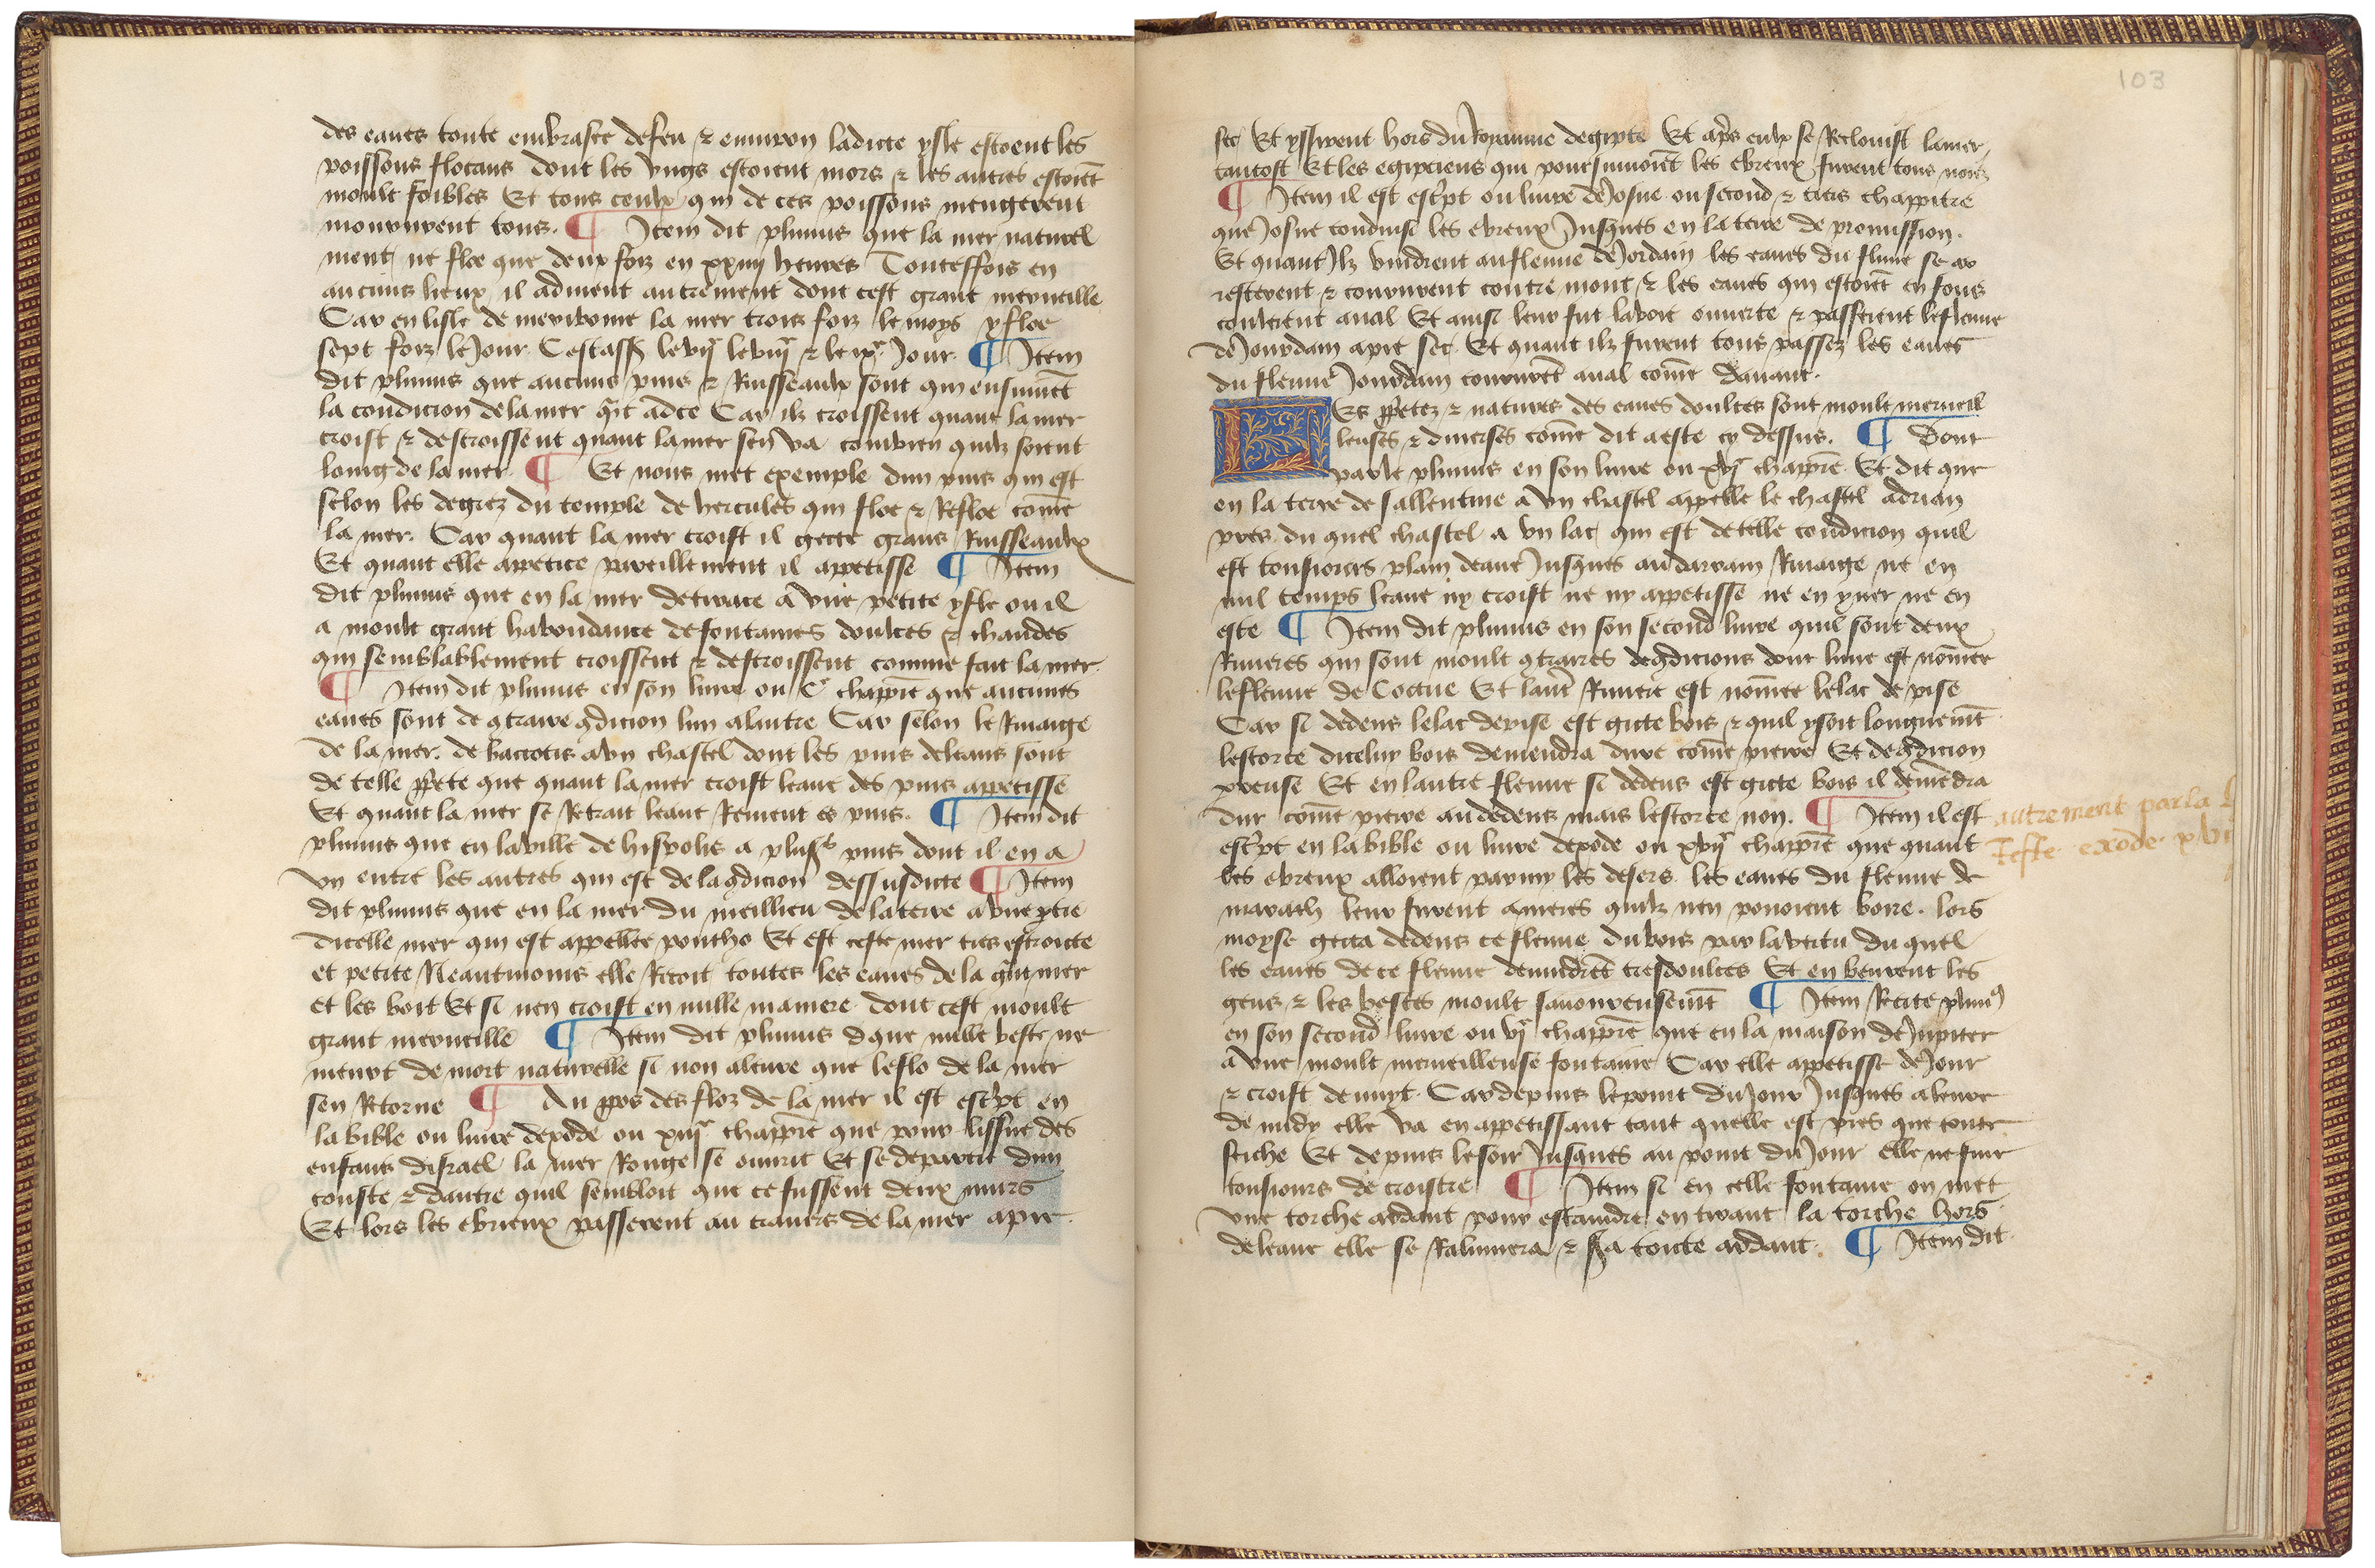 des eaues toute embrasee de feu & enuiron ladicte ysle estoient les
poissons flotans dont les vngs estoient mors & les autres estoiēt
moult foibles Et tous ceulx qui de ces poissons mengerent
moururent tous. ¶ Item dit plinius que la mer naturel
ment ne floe que deux foiz en xxiiij heures Toutesfois en
aucuns lieux il aduient autrement dont cest grant merueille
Car en lisle de meroome la mer trois foiz le moys y floe
sept foiz le Jour Cestass le vije le viije & le ixe Jour ¶ Item
dit plinius que aucuns puis & Ruisseaulx sont qui ensuiuēt
la condicion de la mer qāt ad ce Car ilz croissent quant la mer
croist & descroissent quant la mer sen va combien quilz soient
loing de la mer ¶ Et nous met exemple dun puis qui est
selon les degrez du temple de hercules qui floe & Refloe cōme
la mer. Car quant la mer croist il gecte grans Ruisseaulx
Et quant elle appetice pareillement il appetisse ¶ Item
dit plinius que en la mer de trace a vne petite ysle ou il
a moult grant habondance de fontaines doulces & chaudes
qui semblablement croissent & descroissent comme fait la mer.
¶ Item dit plinius en son liure ou Ce chappr̄e que aucunes
eaues sont de ꝯtraire ꝯdicion lun a lautre Car selon le Riuaige
de la mer. de baccotis a vn chastel dont les puis de leans sont
de telle ꝓpete que quant la mer croist leaue des puis appetisse
Et quant la mer se Retrait leaue Reuient es puis. ¶ Item dit
plinius que en la ville de hispolis a plusrs puis dont il en a
vn entre les autres qui est de la ꝯdicion dessusdicte ¶ Item
dit plinius que en la mer du meillieu de la terre a vne ptie
dicelle mer qui est appellee pontho Et est ceste mer tres estroicte
et petite Neantmoins elle Recoit toutes les eaues de la grāt mer
et les boit Et si nen croist en nulle maniere dont cest moult
grant merueille ¶ Item dit plinius que nulle beste ne
meurt de mort naturelle si non a leure que le flo de la mer
sen Retorne ¶ Au ppos des floz de la mer il est escrpt en
la bible ou liure dexode ou xiiije chappr̄e que pour lissue des
enfans disrael la mer Rouge se ouurit Et se departit dun
couste & dautre quil sembloit que ce fussent deux murs
Et lors les ebrieux passerent au trauers de la mer a pie
sec Et yssirent hors du Royaume degipte Et apꝭs eulx se Reclouist la mer
tantost Et les egipciens qui poursuiuoiēt les ebreux furent tous noiez
¶ Item il est escrpt ou liure de Josue ou second & tiers chappitre
que Josue conduisi les ebreux Jusques en la terre de promission.
Et quant Ilz vindrent au fleuue de Jordain les eaues du fluue se ar
resterent & coururent contre mont & les eaues qui estoiēt en fons
coulerent aual Et ainsi leur fut la voie ouuerte & passerent le fleuue
de Jourdain a pie sec Et quant ilz furent tous passez les eaues
du fleuue Jourdain coururēt aual cōme dauant.
LEs ꝓpetez & natures des eaues doulces sont moult merueil
leuses & diuerses cōme dit a este cy dessus. ¶ Dont
parle plinius en son liure ou xvje chappr̄e Et dit que
en la terre de sallentine a vn chastel appelle le chastel adrian
pres du quel chastel a vn lac qui est de telle condicion quil
est tousiours plain deaue Jusques au darrain Riuaige ne en
nul temps leaue ny croist ne ny appetisse ne en yuer ne en
este ¶ Item dit plinius en son second liure quil sont deux
Riuieres qui sont moult ꝯtraires de ꝯdicions dont lune est nōmee
le fleuue de Coctue Et lautre Riuiere est nōmee le lac de pise
Car si dedens le lac de pise est gicte bois & quil y soit longuemt
lestorce dicelui bois deuiendra dure cōme pierre Et de ꝯdicion
preuse Et en lautre fleuue si dedens est gicte bois il deuiēdra
dur cōme pierre au dedens mais lestorce non. ¶ Item il est
escrpt en la bible ou liure dexode ou xvije chappr̄e que quant
les ebreux alloient parmy les desers les eaues du fleuue de
marath leur furent ameres quilz nen pouoient boire. lors
moyse gecta dedens ce fleuue du bois par la vertu du quel
les eaues de ce fleuue deuindrēt tresdoulces Et en beurent les
gens & les bestes moult sauoureusemt ¶ Item Recite plinius
en son second liure ou vje chappr̄e que en la maison de Jupiter
a vne moult merueilleuse fontaine Car elle appetisse de Jour
& croist de nuyt Car depuis le point du Jour Jusques a leure
de midy elle va en appetissant tant quelle est pres que toute
seiche Et depuis le soir Jusques au point du Jour elle ne fine
tousiours de croistre ¶ Item si en celle fontaine on met
vne torche ardant pour estaindre en tirant la torche hors
de leaue elle se Ralumera & sera toute ardant. ¶ Item dit
autrement par la
Teste exode
103